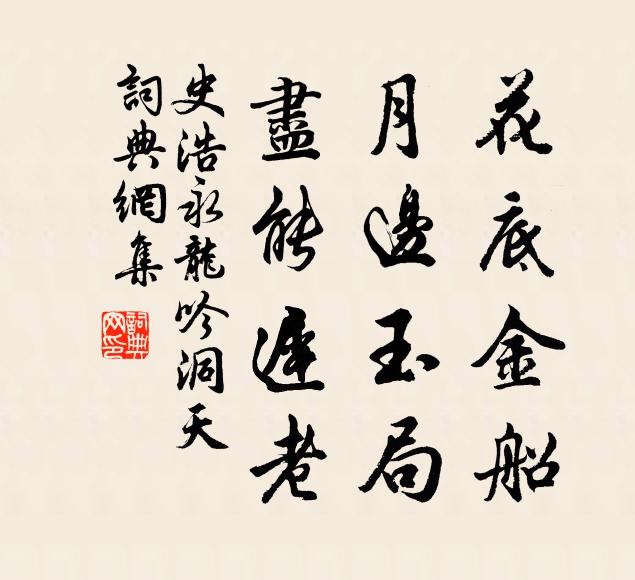 花底金船
月邊玉局
盡能遲老
史浩永龍吟洞天
詞典網集
詞典
网印